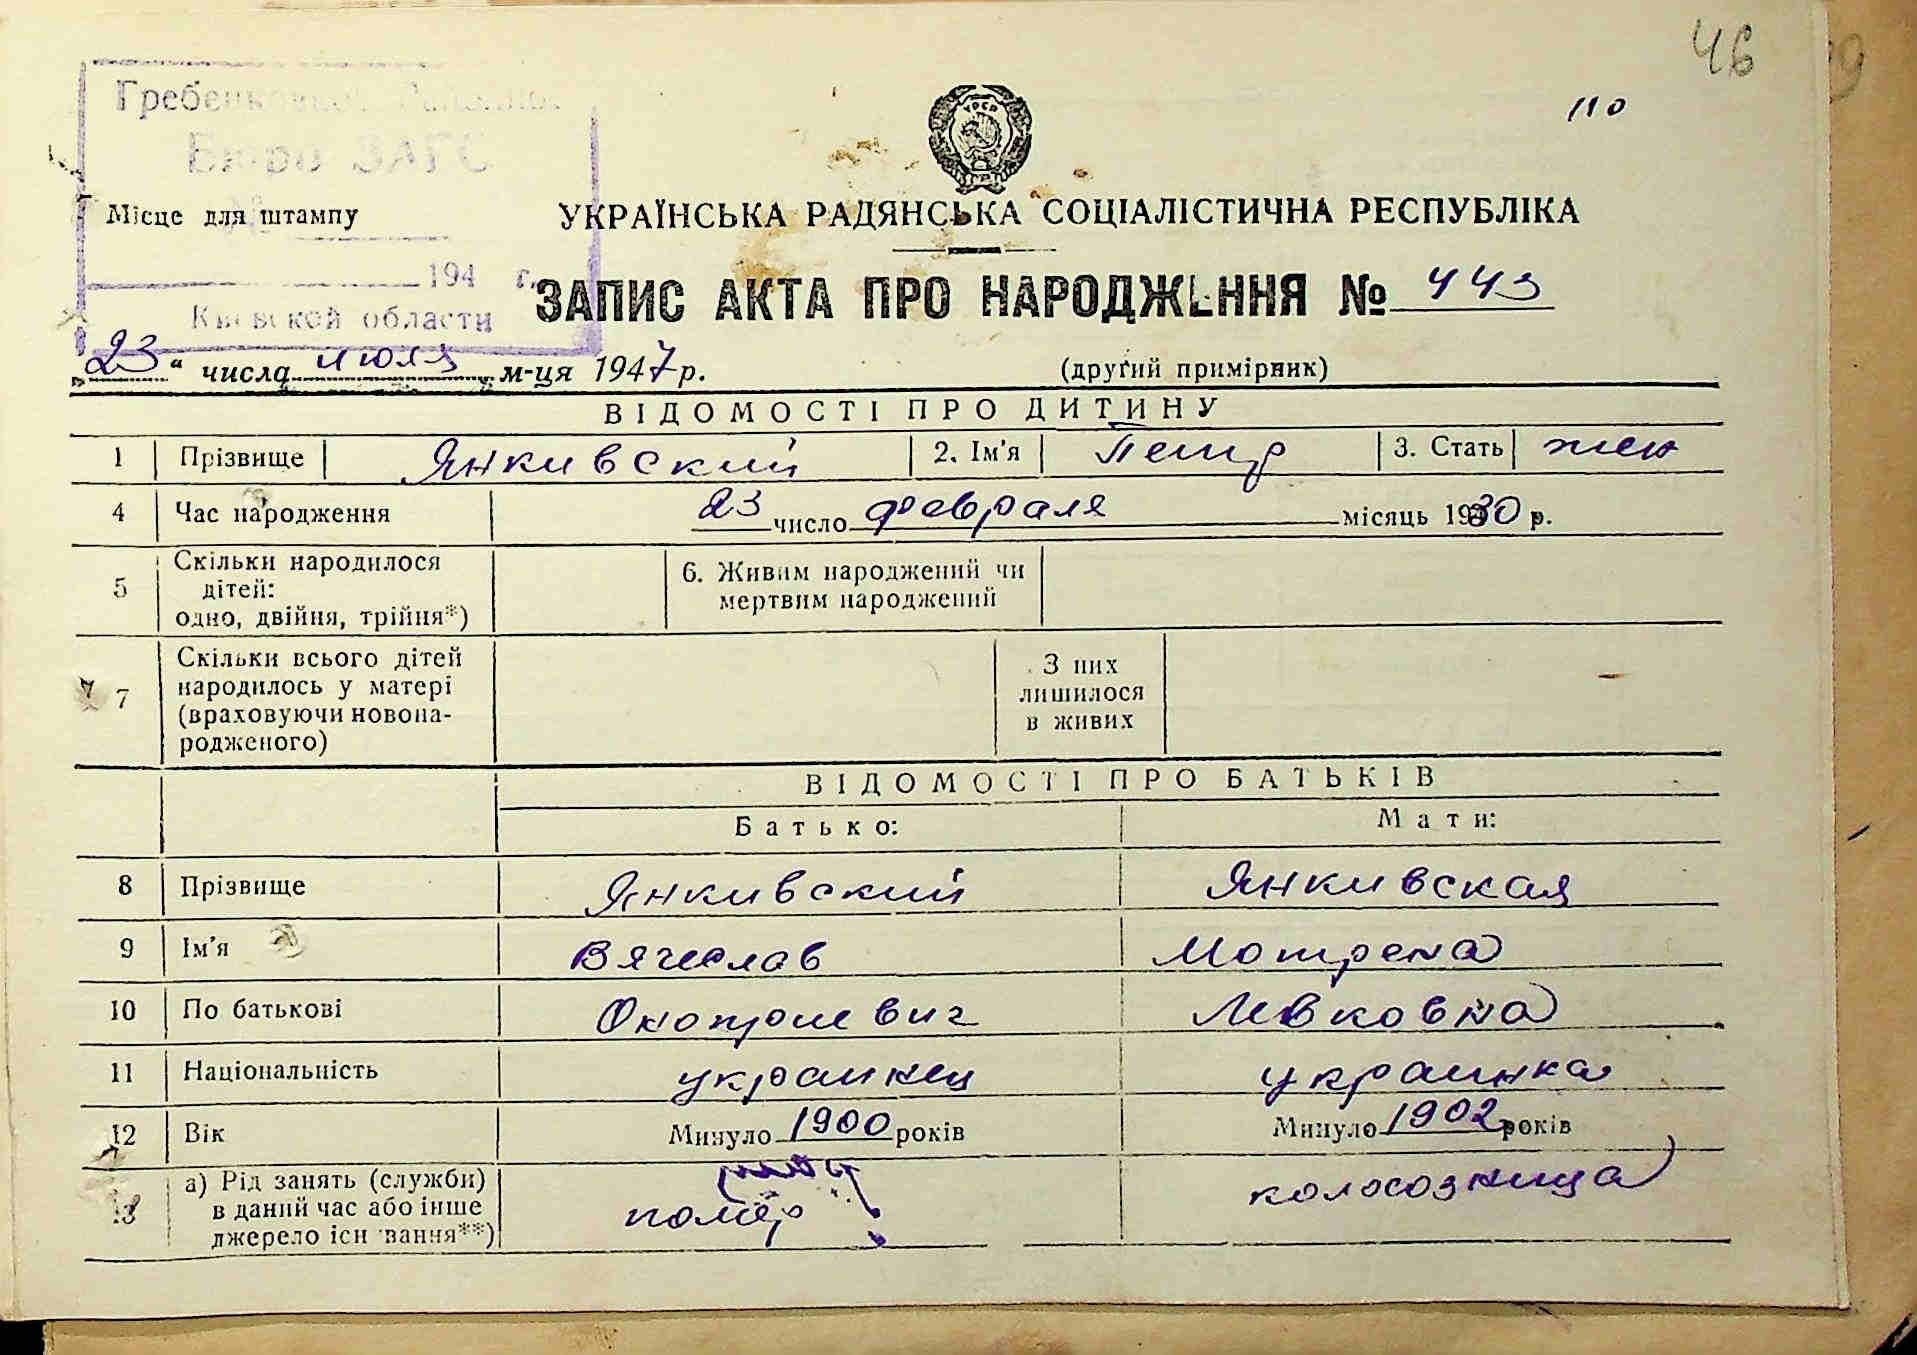 46
110
Гребенковское
Бюро ЗАГС
УРСР
Місце для штампу
УКРАЇНСЬКА РАДЯНСЬКА СОЦІАЛІСТИЧНА РЕСПУБЛІКА
194 г.
Киевской области
ЗАПИС АКТА ПРО НАРОДЖЕННЯ № 443
„23“ числа июля м-ця 1947 р. (другий примірник)
ВІДОМОСТІ ПРО ДИТИНУ
1 Прізвище Янкивский 2. Ім'я Петр 3. Стать
4 Час народження 23 число февраля місяць 1930 р.
5 Скільки народилося дітей: одно, двійня, трійня*) 6. Живим народжений чи мертвим народжений
7 7 Скільки всього дітей народилось у матері (враховуючи новона-родженого) З них лишилося в живих
ВІДОМОСТІ ПРО БАТЬКІВ
Батько: Мати:
8 Прізвище Янкивский Янкивская
9 Ім'я Вячеслав Мотрена
10 По батькові Левковна
11 Національність украинец украинка
12 Вік Минуло 1900 років Минуло 1902 років
13 а) Рід занять (служби) в даний час або інше джерело існування**) помер колхозница